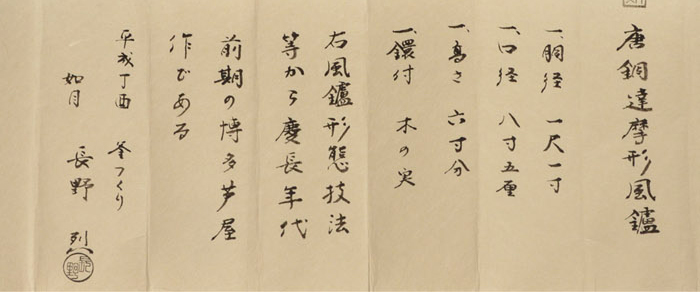 唐銅達摩形風鑪
一、胴径 一尺一寸
一、口径 八寸五厘
一、高さ 六寸分
一、鐶付 木の実
右風鑪形態技法
等から慶長年代
前期の博多芦屋
作である
平成丁酉 釜つくり
如月 長野 烈